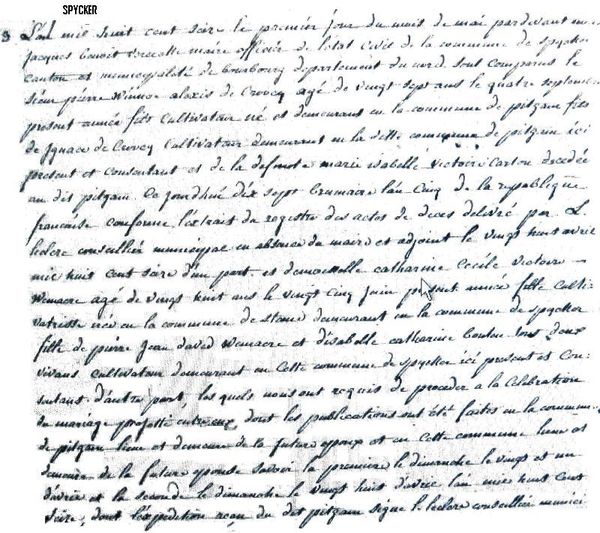 SPYCKER
8 L'an mil huit cent seize le premier jour du mois de mai pardevant nous
Jacques benoit maire officier de l'etat civil de la commune de spycker
canton et municipalité de bourbourg departement du nord sont comparus le
sieur pierre Winnoc alexis de Crocq agé de vingt sept ans le quatre septembre
present année fils Cultivateur né et demeurant en la commune de pitgam fils
de Ignace de Crocq Cultivateur demeurant en la ditte commune de pitgam ici
present et consentant et de la defunte marie isabelle Victoire Carton decedée
au dit pitgam Ce jourdhué dix sept brumaire l'an Cinq de la republique
françoise conforme l'extrait du registre des actes de deces delivré par L.
leclerc conseillier municipal en absence du maire et adjoint le vingt huit avril
mil huit cent seize d'un part et demoiselle catharine Cecile Victoire
Wemaere agé de vingt huit ans le vingt Cinq Juin present année fille Culti-
vatrisse née en la commune de demeurant en la commune de spycker
fille de pierre Jean david Wemaere et d'isabelle catharine tous deux
vivans cultivateur demeurant en Cette commune de spycker ici present et Con-
sentans d'autre part, les quels nous ont requis de proceder a la Celebration
du mariage projetté entre eux dont les publications ont été faites en la commune
de pitgam lieu et demeure de la future epoux et en Cette commune lieu et
demeure de la future epouse savoir la premiere le dimanche le vingt et un
d'avril et la seconde le dimanche le vingt huit d'avril l'an mil huit Cent
Seize, dont l'expedition reçu du dit pitgam signé L. leclerc conseillier munici